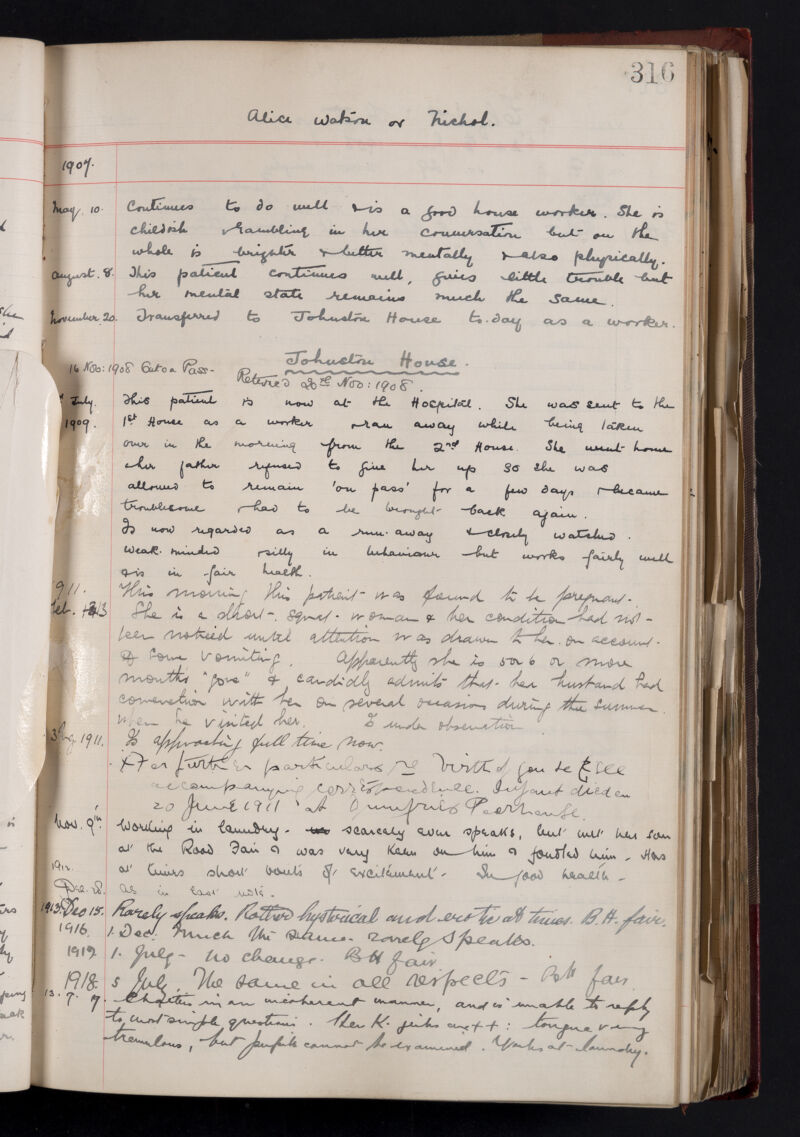 316
Alice Watson or Nichol.
1907.
May. 10. Continues to do well & is a good house worker. She is
childish & rambling in her conversation but on the
whole is brighter & better mentally & also physically.
August. 8. This patient continues well, gives little trouble but
her mental state remains much the same.
November 20. Transferred to Johnston House to-day as a worker.
Johnston House.
16 Nov: 1908 Out on Pass-
Retured 20th Nov: 1908.
July. This patient is now at the Hospital. She was sent to the
1909. 1st House as a worker & ran away while being taken
over in the morning from the 2nd House. She went home
& her father refused to give her up so she was
allowed to remain 'on pass' for a few days & became
troublesome & had to be brought back again.
Is now regarded as a run-away & closely watched.
Weak-minded & silly in behaviour but works fairly well
& is in fair health.
1911. This morning this patient was found to be pregnant.
Feb. 13 She is a short, squat woman & her condition had not
been noticed until attention was drawn to her on account
of some vomiting. Apparently she is 5 or 6 or more
months "gone" & candidly admits that her husband had
connection with her on several occasions during the summer
when he visited her. Is under observation
1911. Is approaching full time now.
For further particulars re birth of see
accompanying correspondence. Infant died on
20 June 1911 at Dumfries Poorhouse.
Nov. 9th. Working in laundry - scarcely ever speaks, but met her son
at the Road Fair & was very keen on him & fondled him. Has
at times short bouts of excitement. In good health -
1912.
Dec. 28. as in last note.
1913. Dec 15. Rarely speaks. Rather hysterical and erotic at times. B.H. fair.
1916. 1. Dec. Much the same - rarely speaks.
1917 1. July - no change. B H fair
1918. 5 July. The same in all respects - B H fair
13. 7. 19. Chatters in an incoherent manner, and is unable to reply
to most simple questions. K. jerks are ++: tongue very
tremulous, but pupils cannot be examined. Works at laundry.